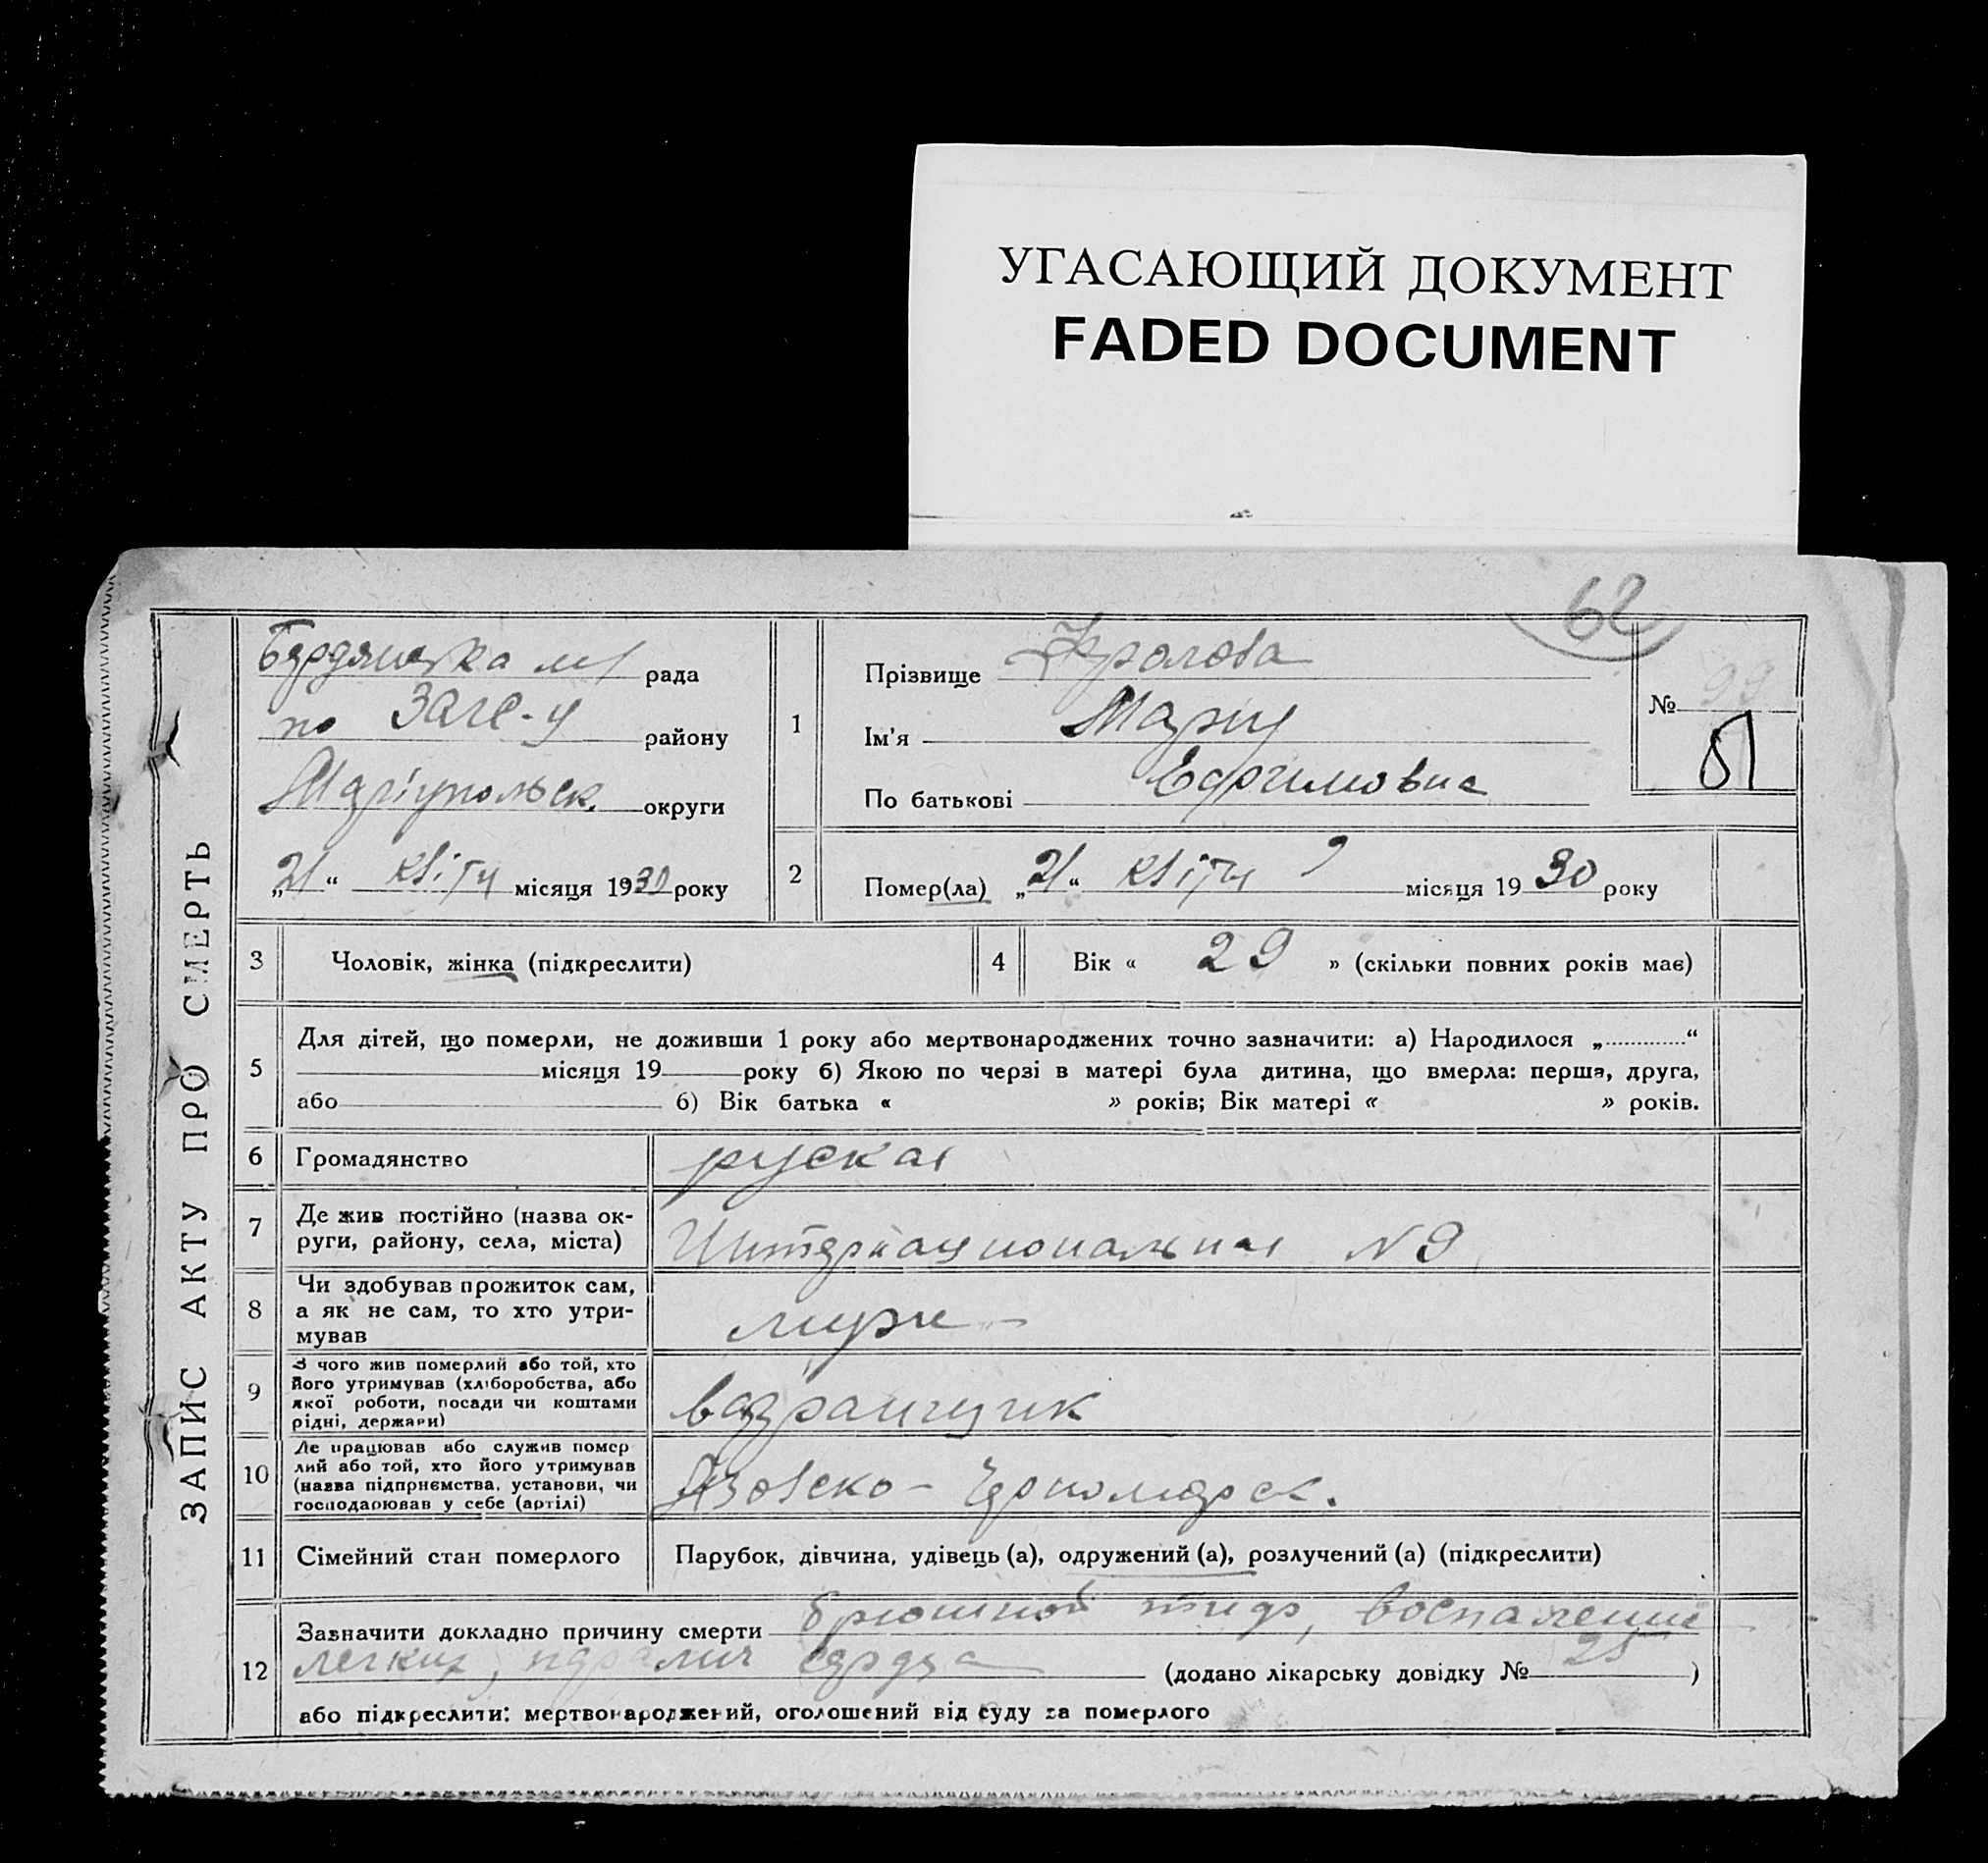 УГАСАЮЩИЙ ДОКУМЕНТ
FADED DOCUMENT
62
ЗАПИС АКТУ ПРО СМЕРТЬ
Бердянська м/ рада
по ЗАГС-у району
Маріупольськ. округи
„21“ квітн місяця 1930 року
1
Прізвище Фролова
Ім'я Мария
По батькові Ефимовна
№ 99
81
2
Помер(ла) „21“ квітн місяця 1930 року
3 Чоловік, жінка (підкреслити)
4 Вік « 29 » (скільки повних років має)
5 Для дітей, що померли, не доживши 1 року або мертвонароджених точно зазначити: а) Народилося „............“
місяця 19 року б) Якою по черзі в матері була дитина, що вмерла: перша, друга,
або б) Вік батька « » років; Вік матері « » років.
6 Громадянство руская
7 Де жив постійно (назва ок-
руги, району, села, міста) Интернациональная N 9
8 Чи здобував прожиток сам,
а як не сам, то хто утри-
мував муж
9 З чого жив померлий або той, хто
його утримував (хліборобства, або
якої роботи, посади чи коштами
рідні, держави)
10 Де працював або служив помер
лий або той, хто його утримував
(назва підприємства, установи, чи
господарював у себе (артілі) Азовско-Черноморск.
11 Сімейний стан померлого Парубок, дівчина, удівець (а), одружений (а), розлучений (а) (підкреслити)
12 Зазначити докладно причину смерти брюшной тиф, воспаление
легких, паралич сердца (додано лікарську довідку № 25 )
або підкреслити: мертвонароджений, оголошений від суду за померлого